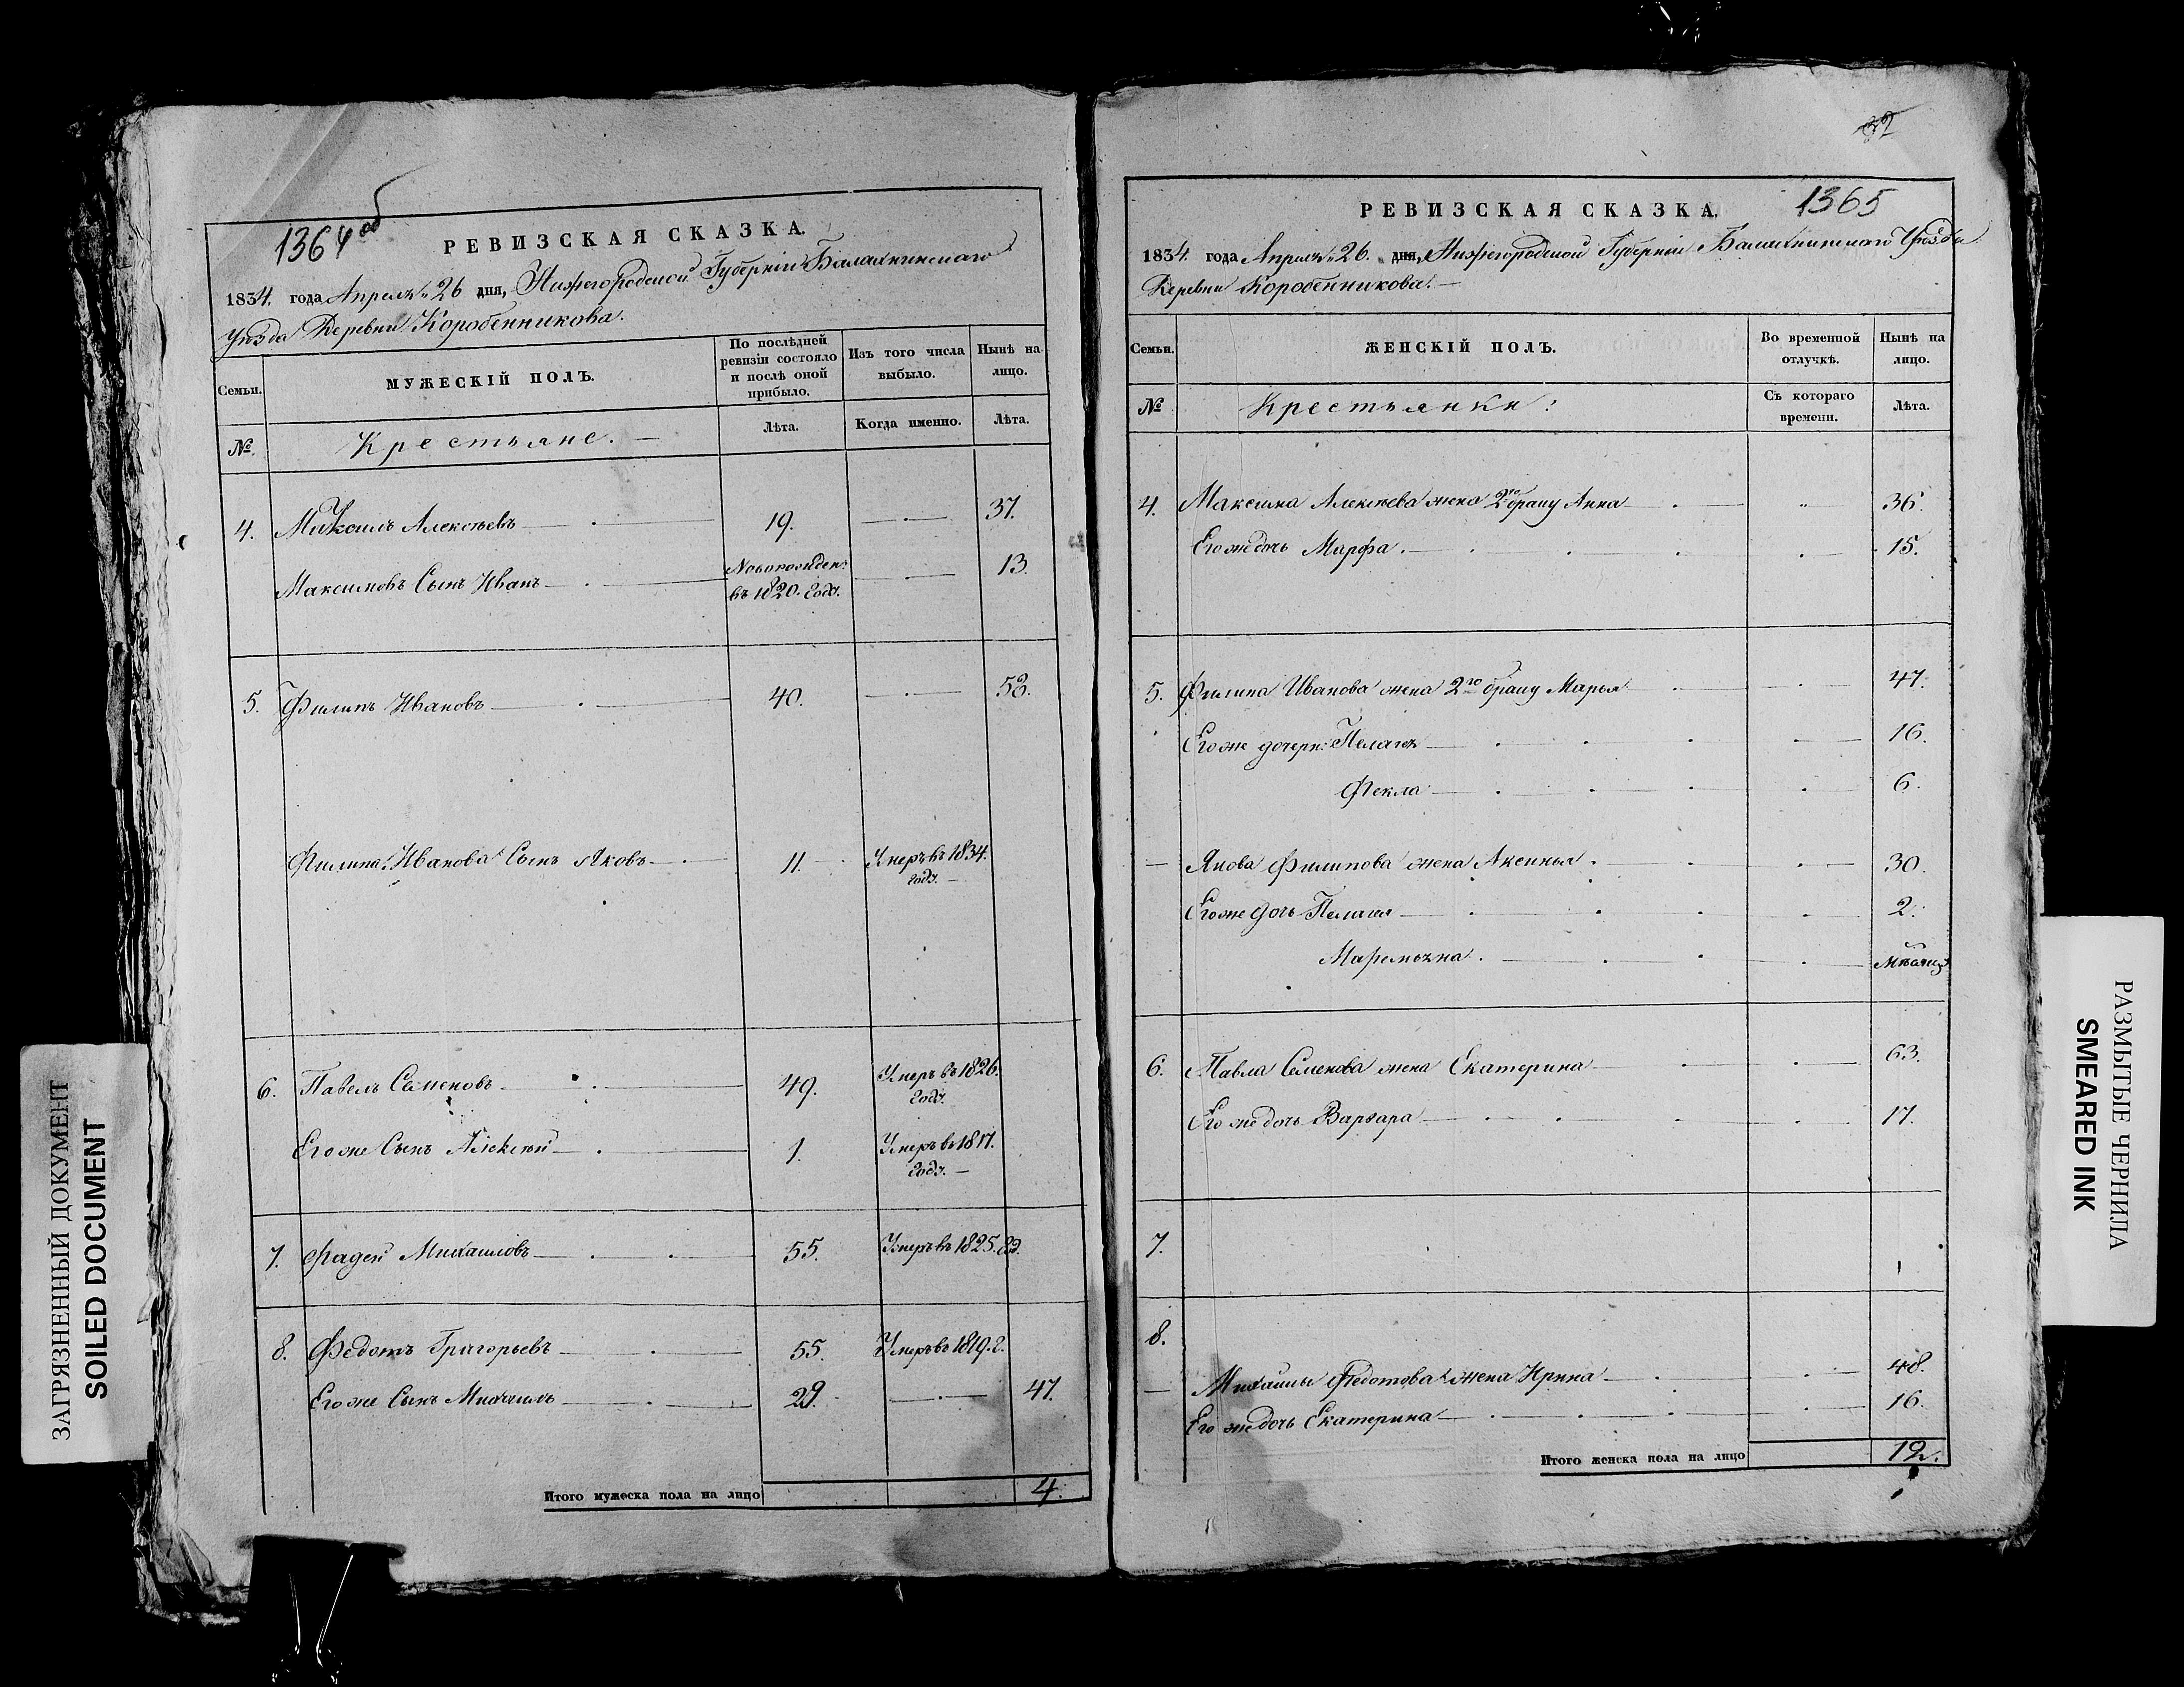 1364 об
РЕВИЗСКАЯ СКАЗКА.
1834. года Апреля 26 дня, Нижегородской Губернiи Балахнинскаго
Уѣзда Деревни Коробенникова.
Семьи.
МУЖЕСКIЙ ПОЛЪ.
По послѣдней ревизiи состояло и послѣ оной прибыло.
Изъ того числа выбыло.
Нынѣ на лицо.
№.
Крестьяне.
Лѣта.
Когда именно.
Лѣта.
4. Алексѣевъ 19. 37.
Максимовъ Сынъ Иванъ Новорожден: въ 1820. годъ. 13.
5. Филипъ Ивановъ 40. 
Филипа Иванова Сынъ Яковъ 11. Умеръ въ 1834. годъ.
6. Павелъ Семеновъ 49. Умеръ въ 1826. годъ.
Его же Сынъ Алексѣй 1. Умеръ въ 1817. годъ.
7. Фадей Михаиловъ 55. Умеръ въ 1825. год.
8. Федотъ Григорьевъ 55. Умеръ въ 1819. г.
Его же Сынъ Михаилъ 29. 47.
Итого мужеска пола на лицо 4.
32
1365
РЕВИЗСКАЯ СКАЗКА.
1834. года Апреля 26. дня, Нижегородской Губернiи Балахнинскаго Уѣзда
Деревни Коробенникова.
Семьи.
ЖЕНСКIЙ ПОЛЪ.
Во временной отлучкѣ.
Нынѣ на лицо.
№
Крестьянки:
Съ котораго времени.
Лѣта.
4. Максима Алексѣева жена 2го браку Анна 36.
Его же дочь Марфа. 15.
5. Филипа Иванова жена 2го браку Марья 47.
Его же дочери: Пелагея 16.
Фекла 6.
Якова Филипова жена Аксинья. 30.
Его же дочь Пелагея 2.
6. Павла Семенова жена Екатерина 63.
Его же дочь Варвара 17.
7.
8.
Михаилы Федотова жена Ирина 48.
Его же дочь Екатерина 16.
Итого женска пола на лицо 12.
ЗАГРЯЗНЕННЫЙ ДОКУМЕНТ
SOILED DOCUMENT
РАЗМЫТЫЕ ЧЕРНИЛА
SMEARED INK